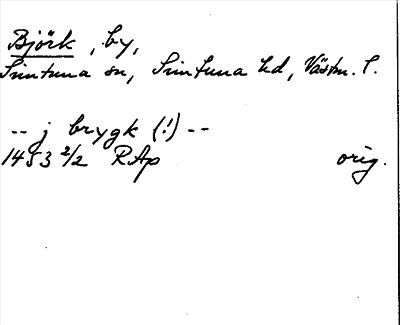 Björk, by,
Simtuna sn, Simtuna hd, Västm. l.
-- j brygk (!) --
1453 2/2 RAp orig.